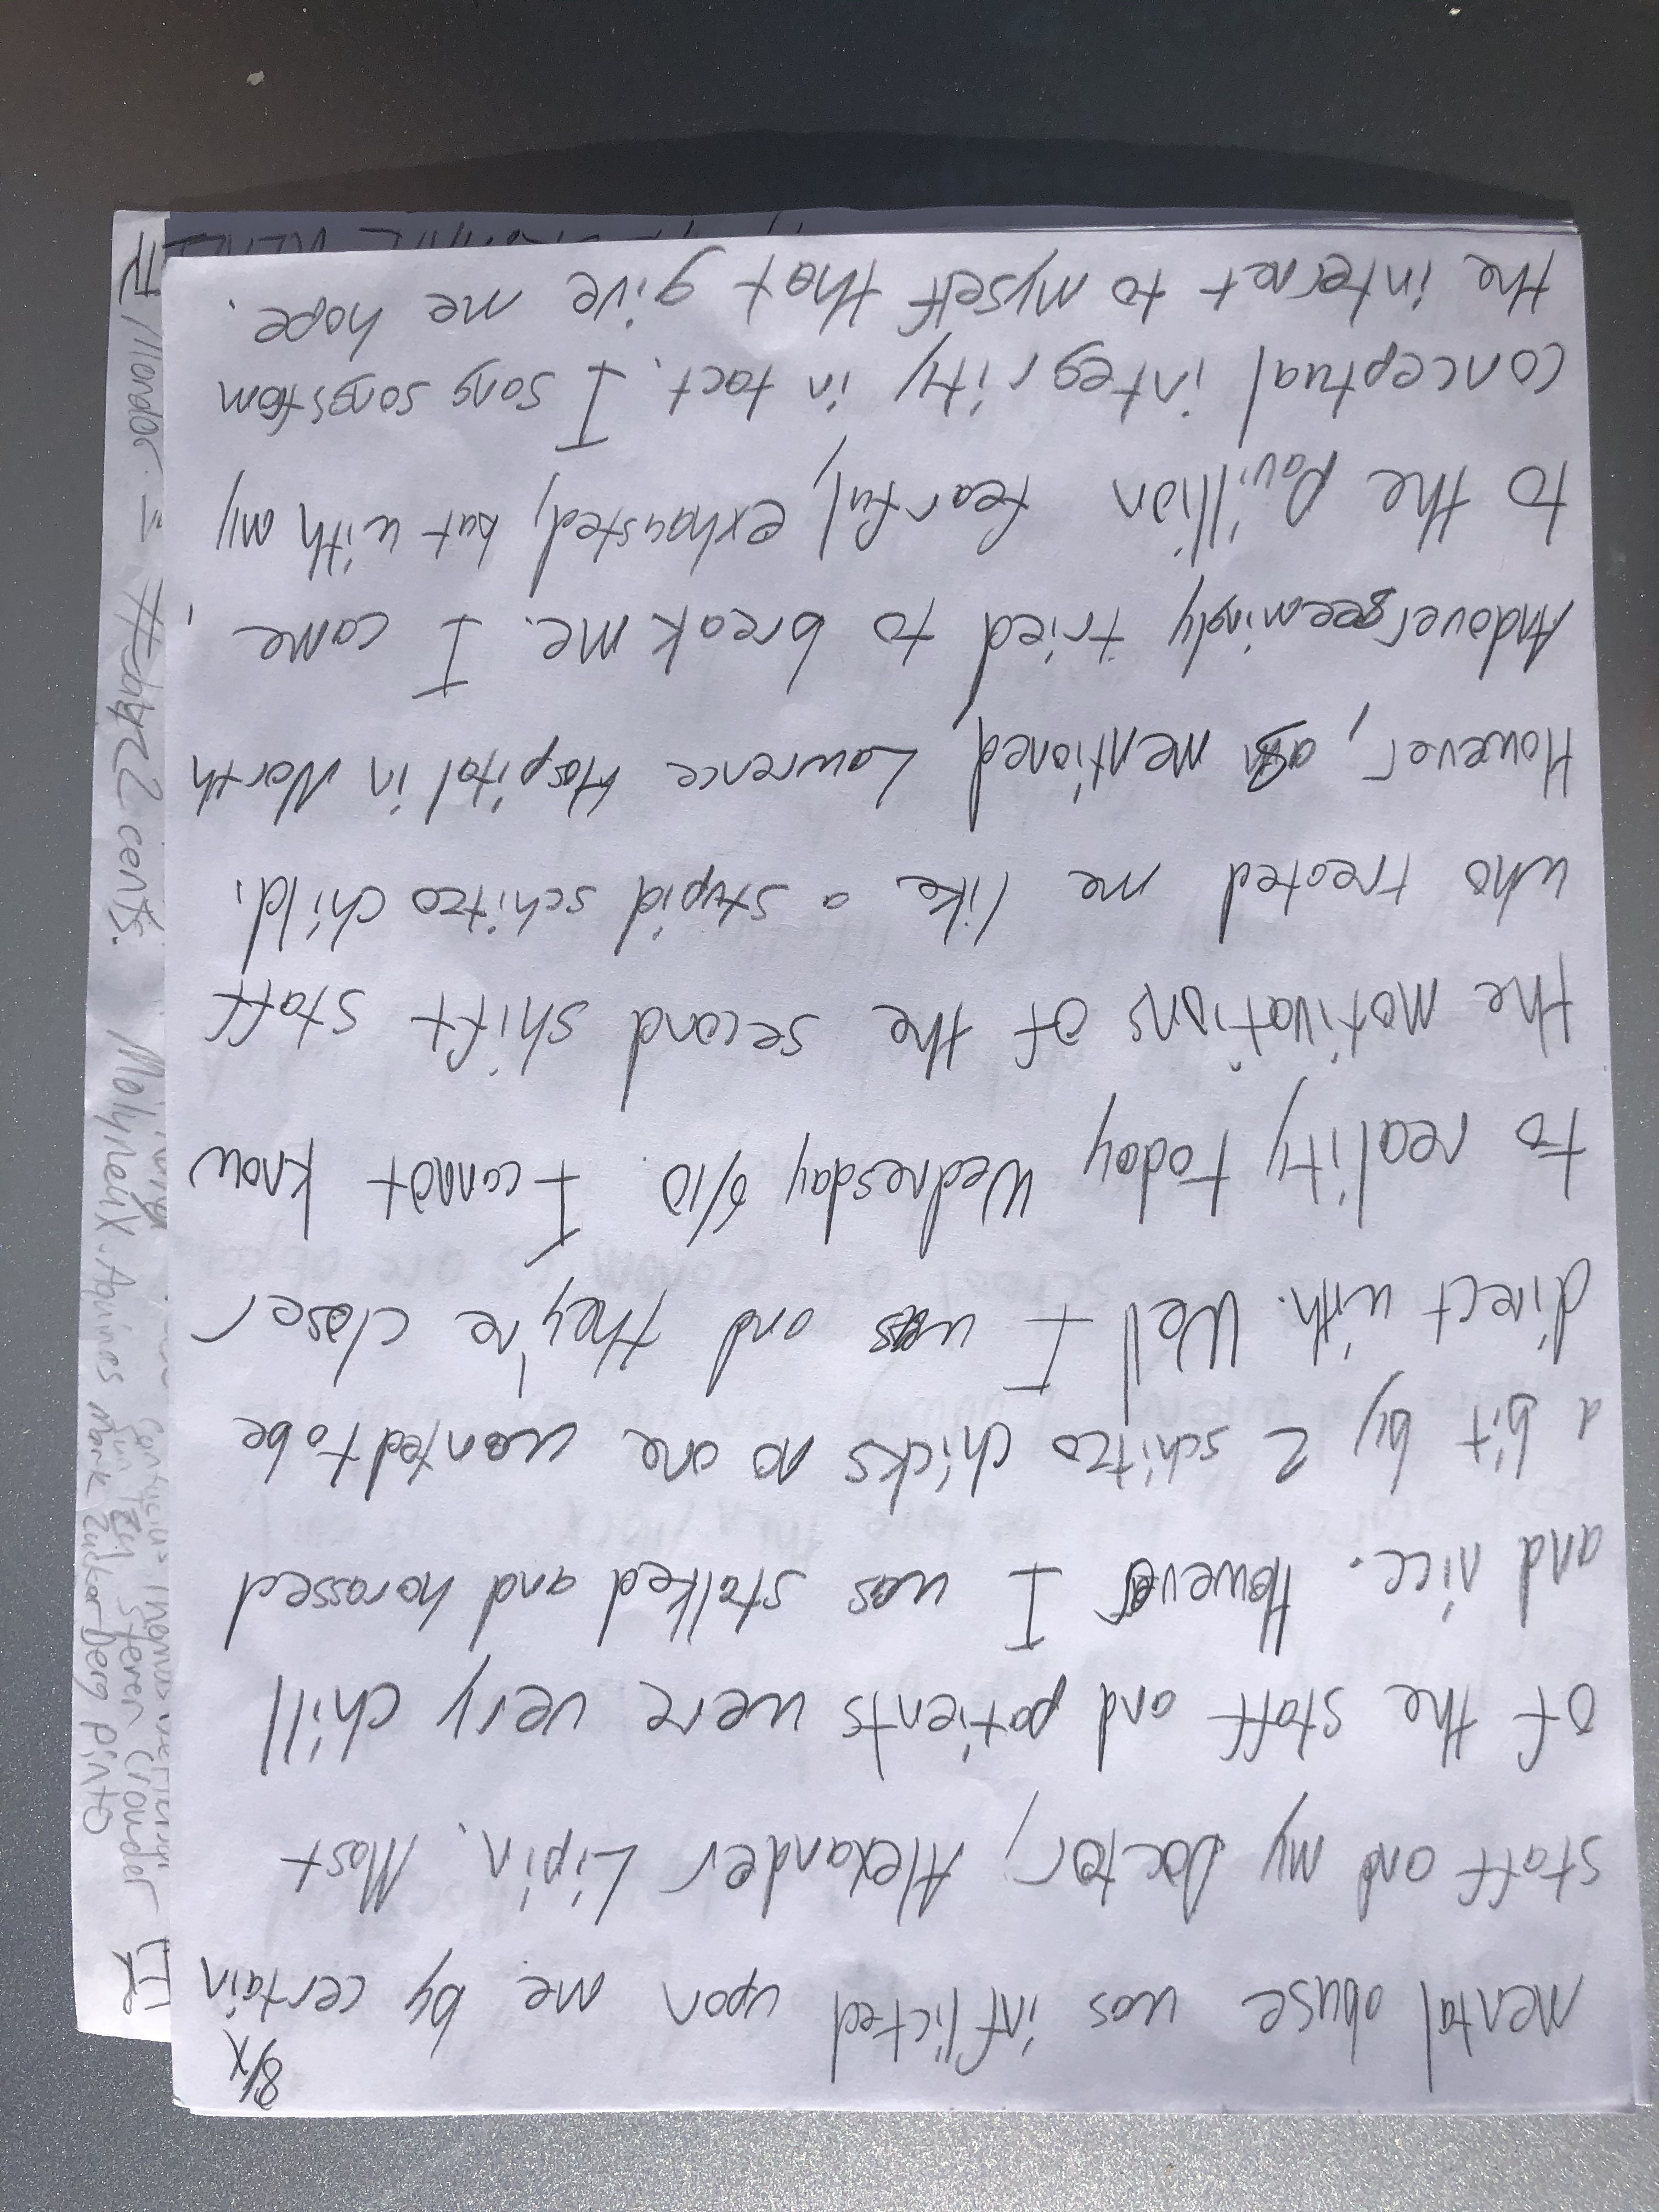 8/x
mental abuse was inflicted upon me by certain
staff and my Doctor, Alexander Lipin. Most
of the staff and patients were very chill
and nice. However I was stalked and harassed
a bit by 2 schitzo chicks no one wanted to be
direct with. Well I was and they're closer
to reality today Wednesday 6/10. I cannot know
the motivations of the second shift staff
who treated me like a stupid schitzo child.
However, as mentioned, Lawrence Hospital in North
Andover seemingly tried to break me. I came
to the Pavillion fearful, exhausted, but with my
conceptual integrity in tact. I sang songs from
the internet to myself that give me hope.
Steven Crowder
Mark Zuckerberg Pinto
Molyneux. Aquinas
2 cents.